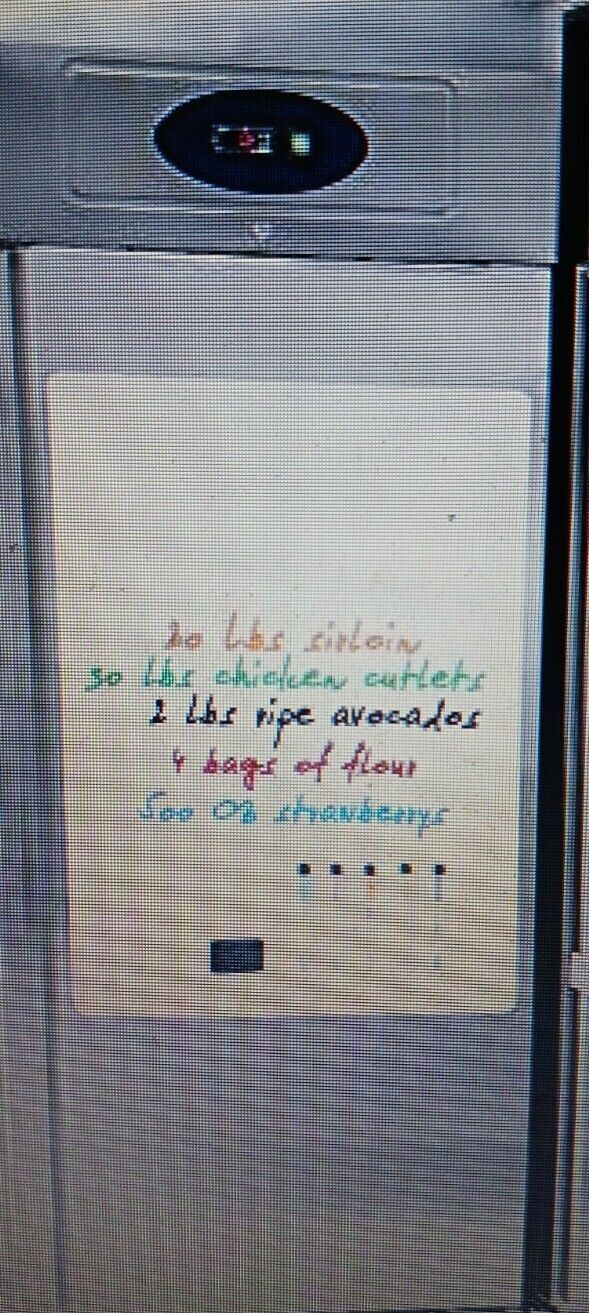 20 lbs sirloin
30 lbs chicken cutlets
2 lbs ripe avocados
4 bags of flour
500 oz strawberrys